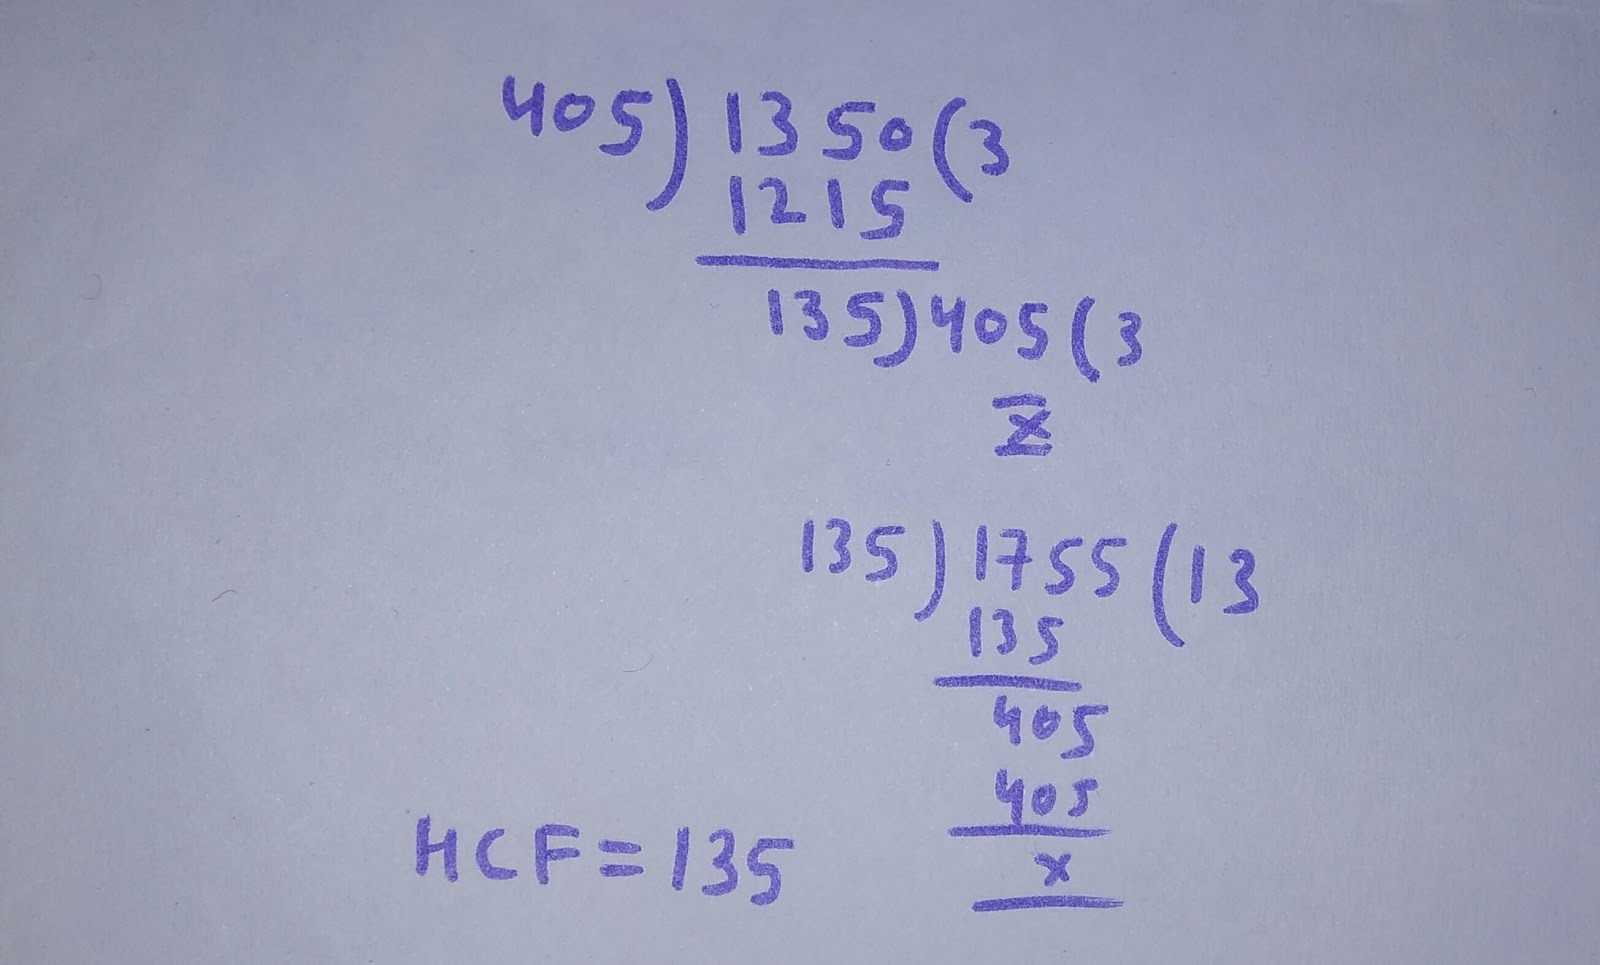 405) 1350 (3
1215
135) 405 (3
x
135) 1755 (13
135
405
405
x
HCF = 135